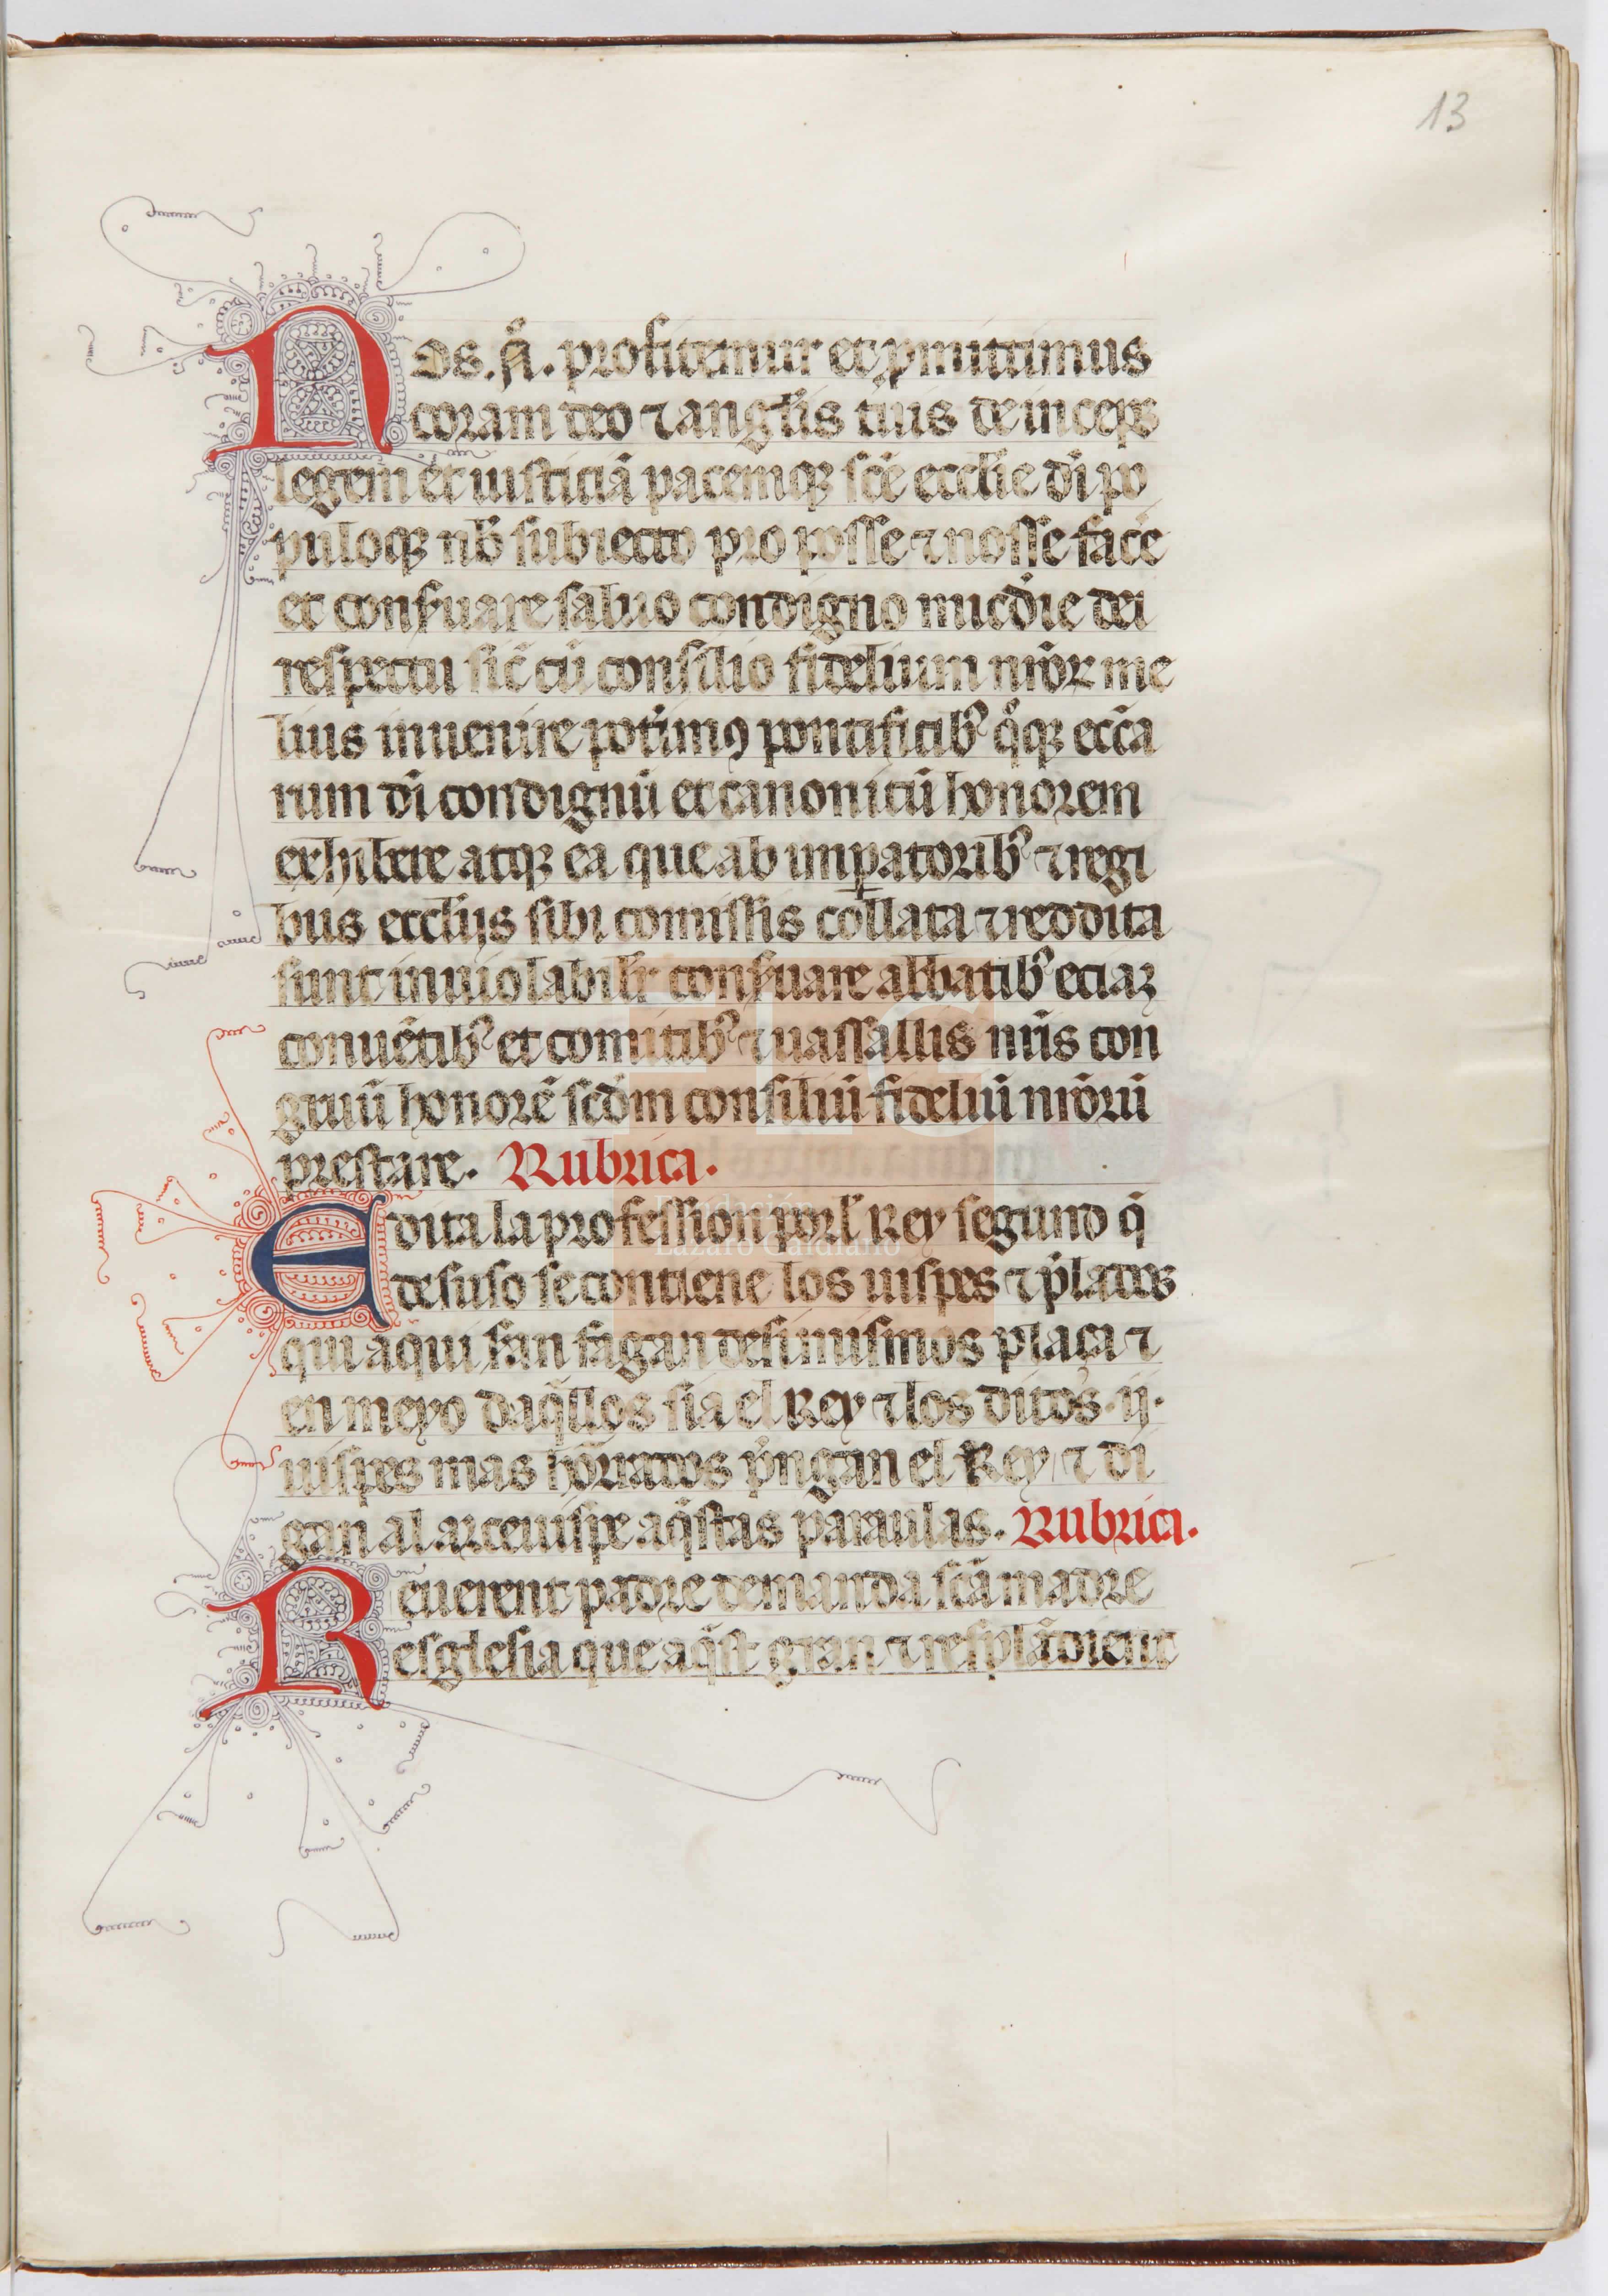 13
Nos. ẜa. profitemur et ꝓmittimus
coram deo ⁊ anglis eius deinceps
legem et iusticiã pacemqꝫ scẽ ecclie dĩ po
puloqꝫ nb̃ subiecto pro posse ⁊ nosse facẽ
et conẜuare saluo condigno mĩcdie dei
respectu sic̃ cũ consilio fidelium nr̃oꝝ me
lius inuenire pot̃imꝯ pontificibꝰ q̊qꝫ ecc̃a
rum dĩ condignũ et canonicũ honorem
exhibere atqꝫ ea que ab imꝑatoribꝰ ⁊ regi
bus eccliis sibi comissis collata ⁊ reddita
sunt inuiolabilr̃ conẜuare abbatibꝰ eciaꝫ
conuẽtibꝰ et comitibꝰ ⁊ uassallis nr̃is con
gruũ honorẽ scd̃m consiliũ fideliũ nr̃orũ
prestare. Rubrica.
Edita la profession porl Rey segund q̃
de suso se contiene los uispes ⁊ p̃lados
qui aqui ẜan fagan desi mismos plaça ⁊
en meyo daq̃llos sia el Rey ⁊ los ditos .ij.
uispes mas hõrrados p̃ngan el Rey ⁊ di
gan al arceuispe aq̃stas paraulas. Rubrica.
Reuerent padre demanda scã madre
esglesia que aq̃st gran ⁊ resplãdient
Fundación
Lázaro Galdiano